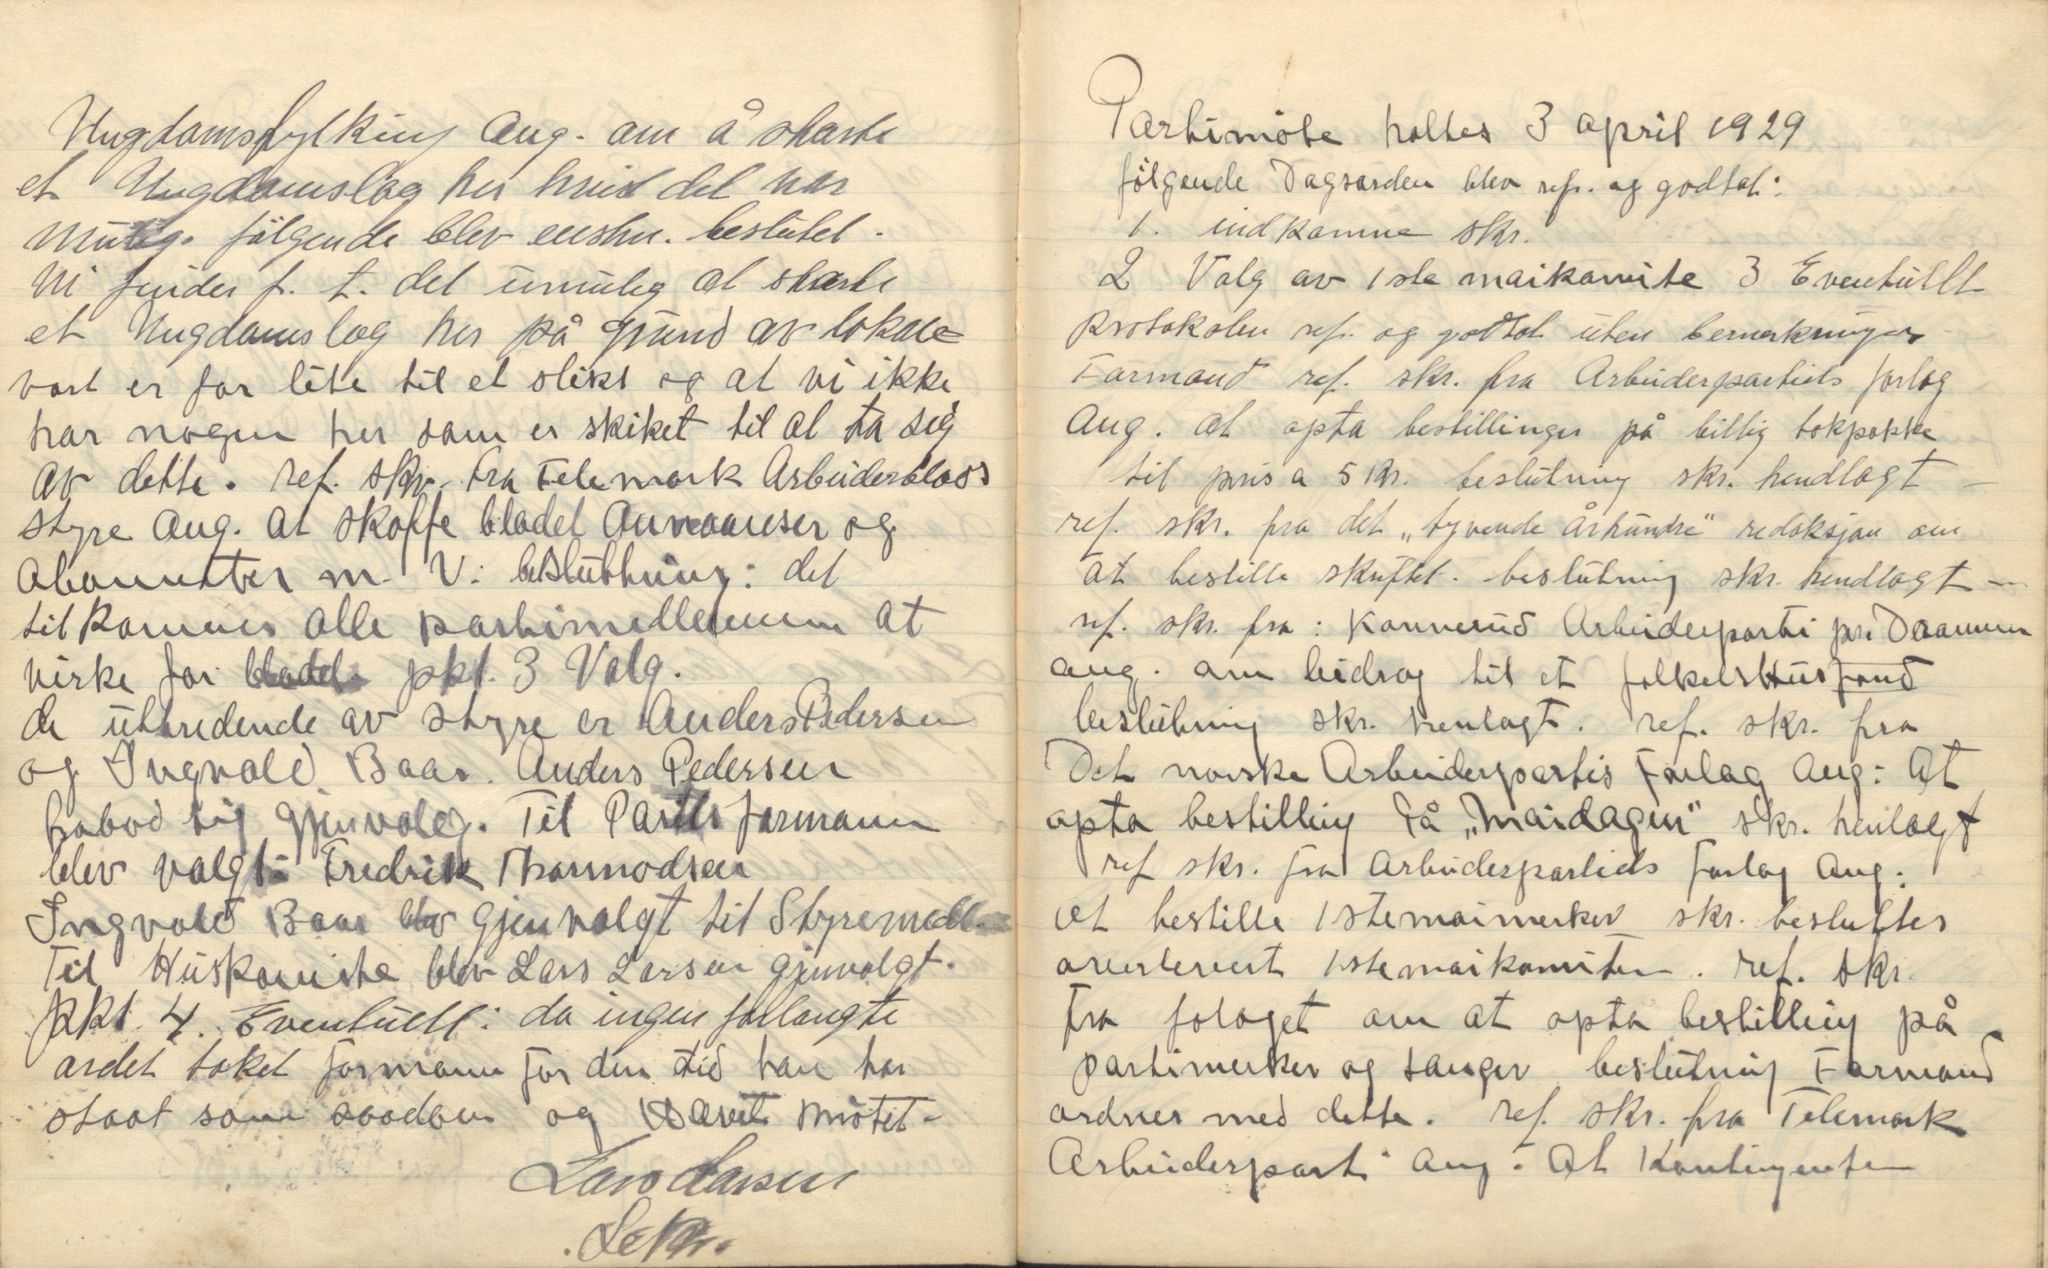 Ungdomsfylking ang. om å starte
et Ungdomslag her hvist det var
mulig. følgende blev enstm. beslutet.
Vi finder f. t. det umulig at starte
et Ungdomslag her på grund av lokale
vort er for lite til et slikt og at vi ikke
har nogen her som er skiket til at ta seg
av dette. ref. skr. fra Telemark Arbeiderblads
styre ang. at skaffe bladet Annonser og
Abonenter m. V: beslutning: det
tilkommer alle partimedlemmer at
virke for bladet pkt. 3 Valg.
de uttredende av styre er Anders Pedersen
og Ingvald Baar. Anders Pedersen
frabad sig gjenvalg. Til Partis formann
blev valgt: Fredrik Thormodsen
Ingvald Baar blev gjenvalgt til Styremedl.
Til Huskomite blev Lars Larsen gjenvalgt.
pkt. 4. Eventuelt: da ingen forlangte
ordet taket formann for den tid han har
staat som saadan og hævet møtet-
Lars Larsen
Sekr.
Partimøte holtes 3 april 1929
følgende Dagsorden blev ref. og godtat:
1. indkomne skr.
2 Valg av 1ste maikomite 3 Eventuellt
protokolen ref. og godtat uten bemerkninger
Formand ref. skr. fra Arbeiderpartiets forlag
Ang. at opta bestillinger på billig bokpakke
til pris a 5 kr. beslutning skr. hendlagt -
ref. skr. fra det „tyvende århundre" redaksjon om
at bestille skriftet. beslutning skr. hendlagt -
ref. skr. fra: Konnerud Arbeiderparti pr. Draamen
ang. om bidrag til et folketsHus fond
beslutning skr. henlagt. ref. skr. fra
Det norske Arbeiderpartis Forlag Ang: At
opta bestilling På „Maidagen" skr. henlagt
ref skr. fra Arbeiderpartids forlag Ang:
at bestille 1stemaimerker skr. besluttes
overlevert 1ste maikomiten. ref. skr.
fra forlaget om at opta bestilling på
partimerker og sanger beslutning Formand
ordner med dette. ref. skr. fra Telemark
Arbeiderparti ang: At Kontingenten